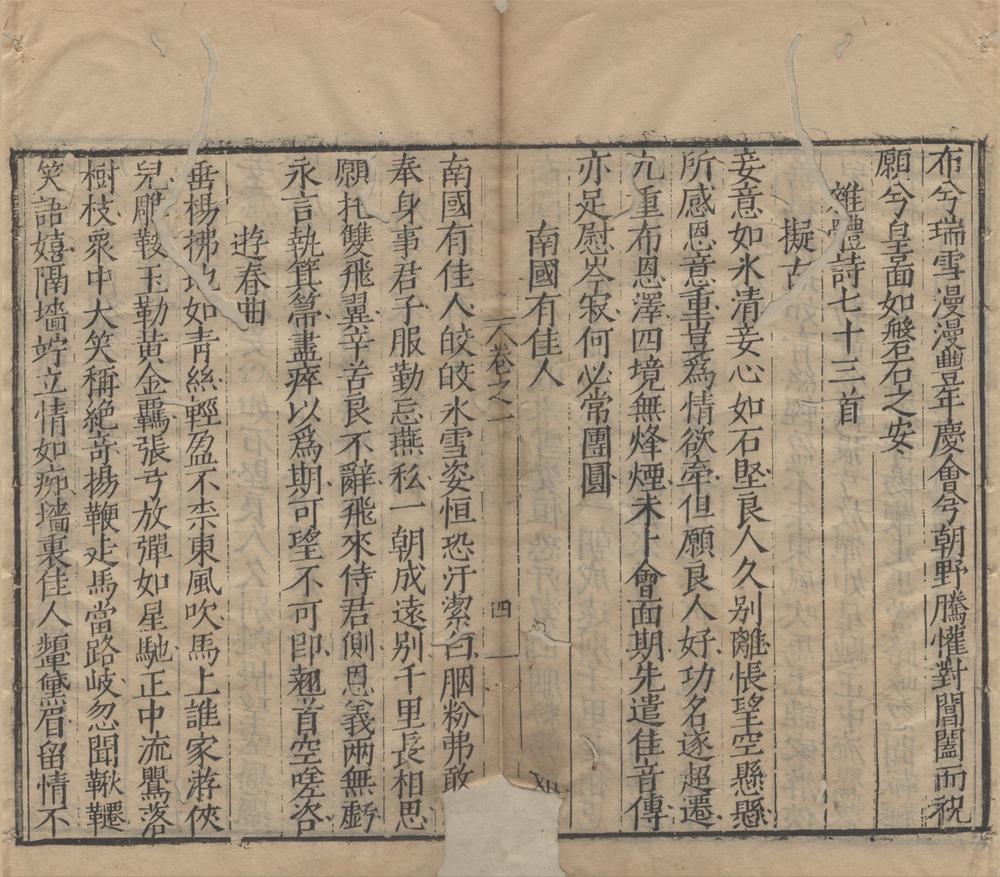 布兮瑞雪漫漫豐年慶會兮朝野騰懽對閶闔而祝
願兮皇面如磐石之安
雜體詩七十三首
擬古
妾意如水清妾心如石堅良人久別離悵望空懸懸
所感恩意重豈爲情欲牽但願良人好功名遂超遷
九重布恩澤四境無烽煙未卜會面期先遣佳音傳
亦足慰岑寂何必常團圓
南國有佳人
卷之一
四
南國有佳人皎皎氷雪姿恒恐汙潔白胭粉弗敢
奉身事君子服勤忘燕私一朝成遠別千里長相思
願托雙飛翼辛苦良不辭飛來侍君側恩義兩無虧
永言執箕箒盡瘁以爲期可望不可即翹首空嗟咨
遊春曲
垂楊拂地如青絲輕盈不柰東風吹馬上誰家游俠
兒雕鞍玉勒黃金羈張弓放彈如星馳正中流鸎落
樹枝衆中大笑稱絶奇揚鞭走馬當路岐忽聞鞦韆
笑語嬉隔墻竚立情如痴墻裏佳人顰黛眉留情不